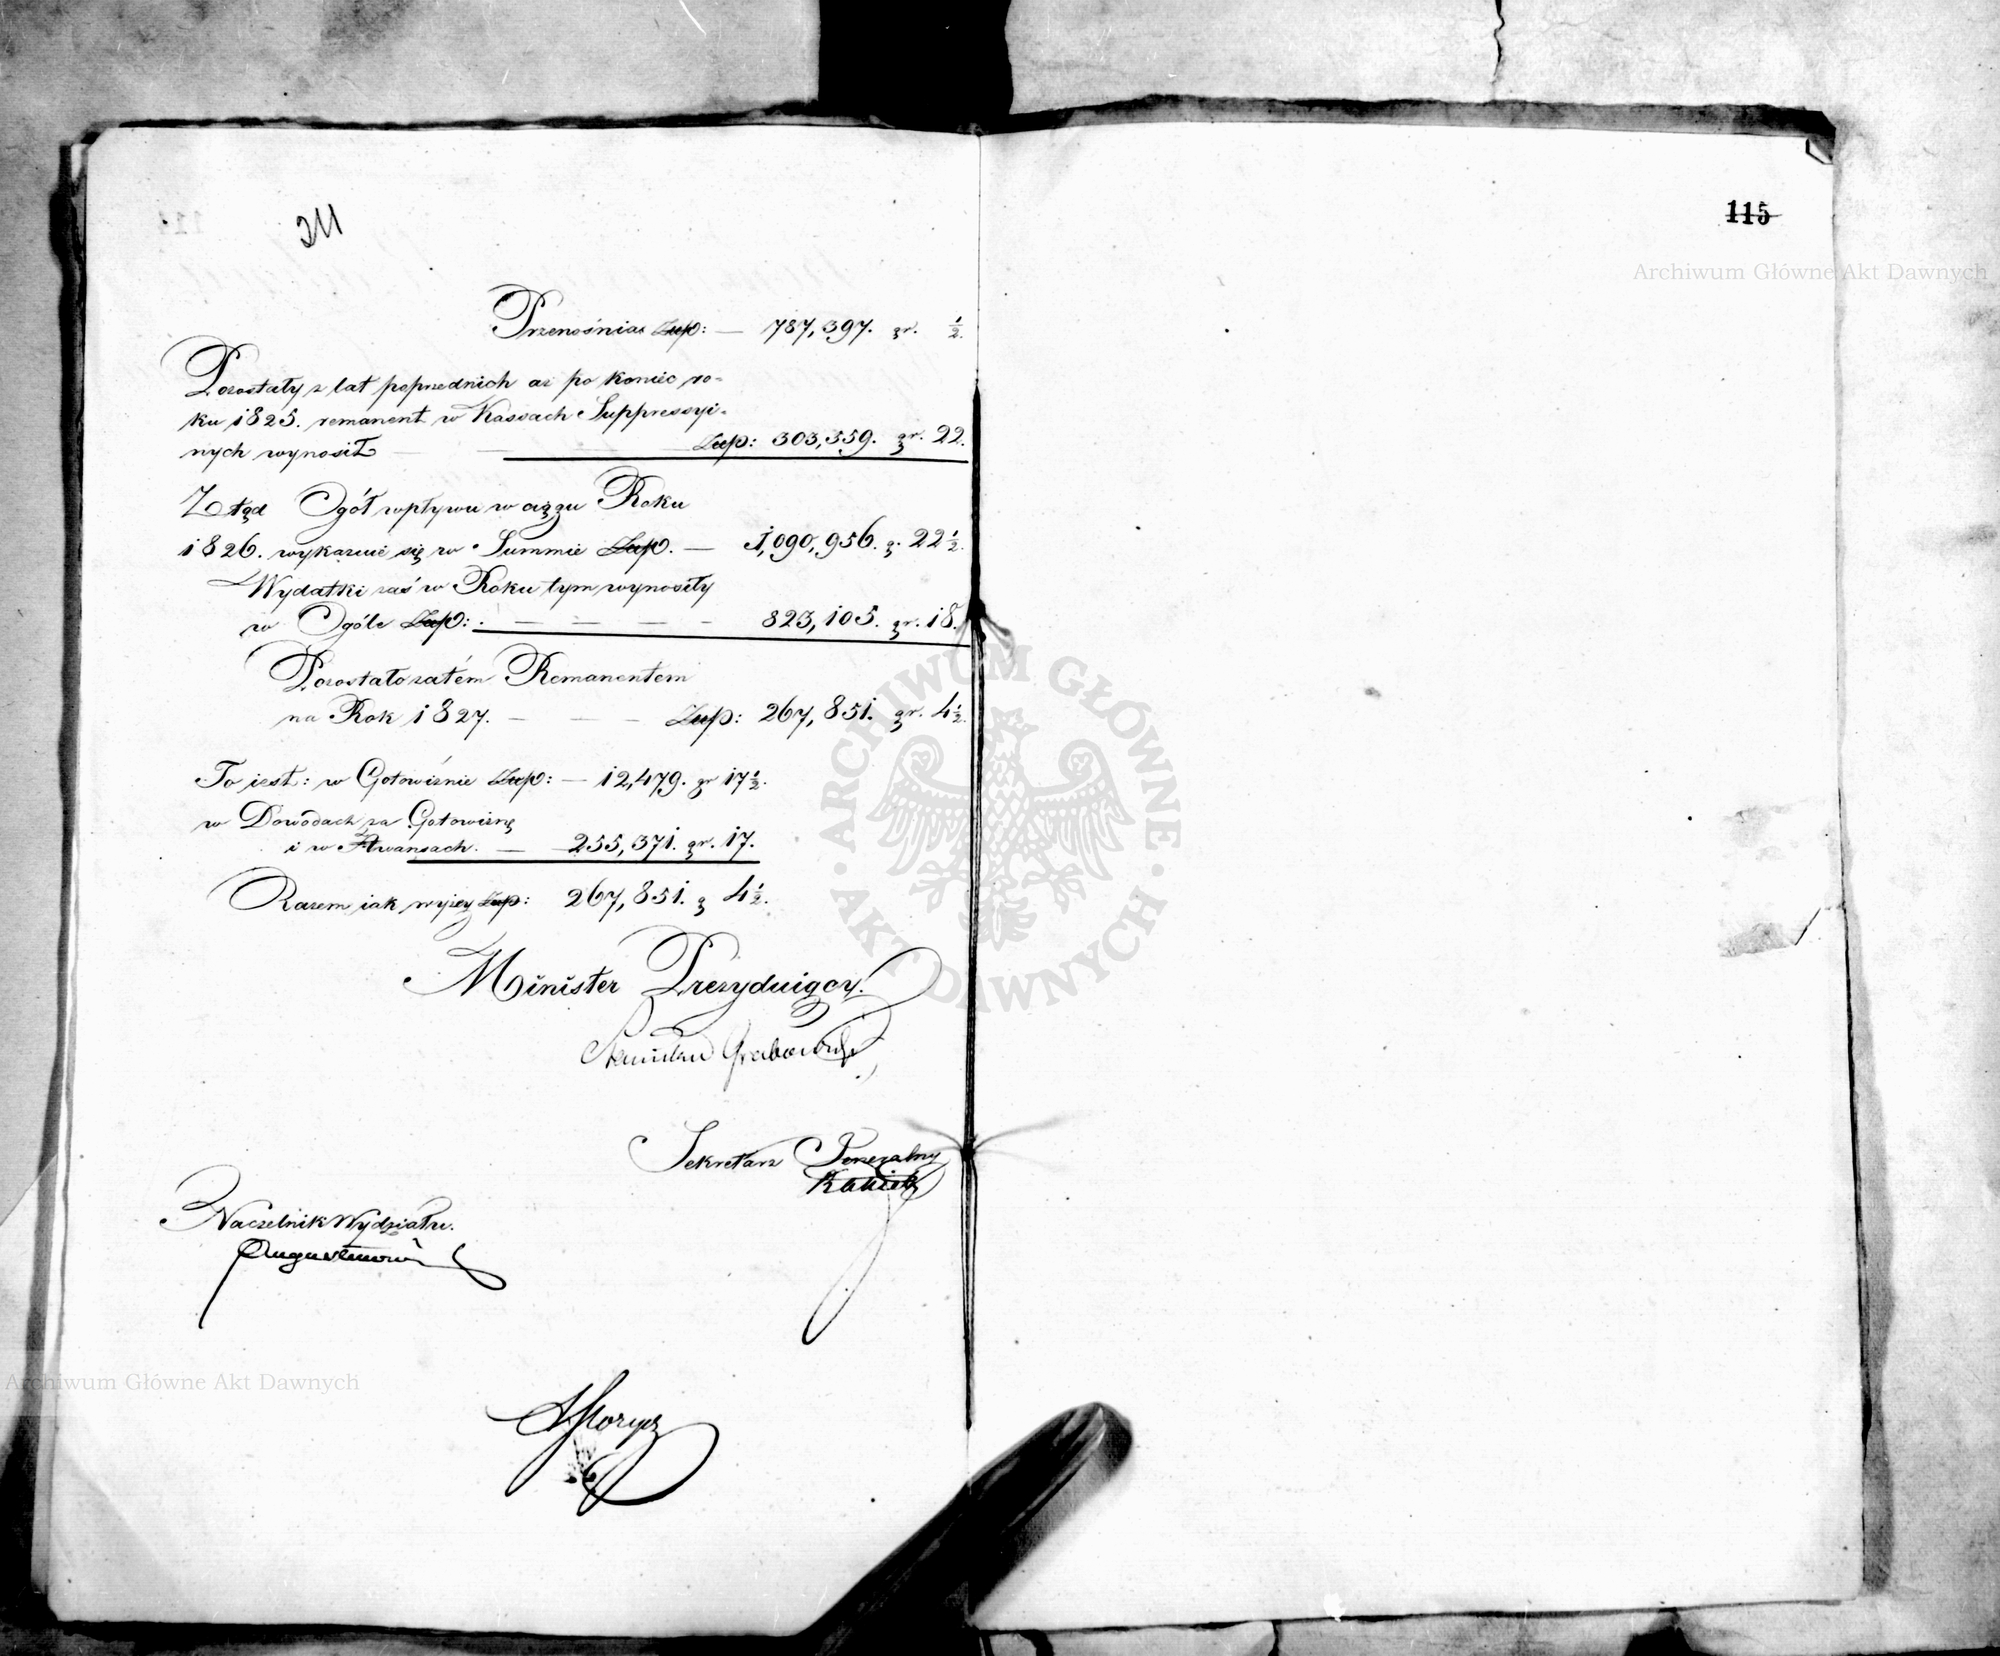 211
115
Przenośnia Złp: — 787,397. gr. ½.
Pozostały z lat poprzednich aż po koniec ro-
ku 1825. remanent w Kassach Suppressyi-
nych wynosił — Złp: 303,559. gr. 22.
Ztąd Ogół wpływu w ciągu Roku
1826. wykazuie się w Summie Złp. — 1,090,956. g. 22½.
Wydatki zaś w Roku tym wynosiły
w Ogóle Złp: . — — — — 823,105. gr. 18.
Pozostało zatém Remanentem
na Rok 1827. — — — Złp: 267,851. gr. 4½.
To iest: w Gotowiźnie Złp: — 12,479. gr 17½.
w Dowodach za Gotowiznę
i w Awansach. — 255,371. gr. 17.
Razem iak wyżey Złp: 267,851. g 4½.
Minister Prezyduiący.
Stanisław Grabowski
Sekretarz Jeneralny
Naczelnik Wydziału.
Archiwum Główne Akt Dawnych
Archiwum Główne Akt Dawnych
ARCHIWUM GŁÓWNE · AKT DAWNYCH ·